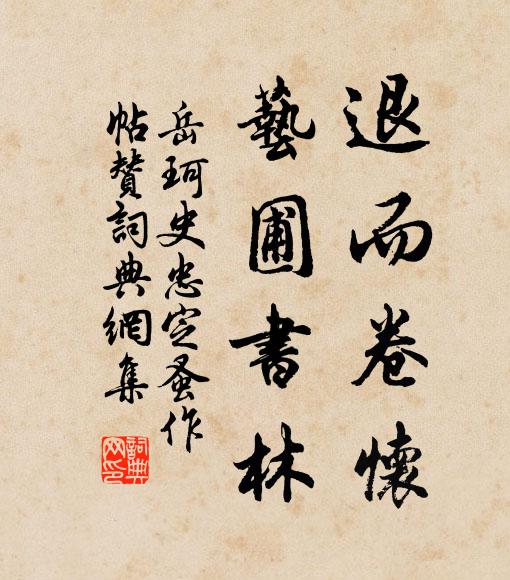 退而卷懷
藝圃書林
岳珂史忠定蚤作
帖贊詞典網集
詞典
网印